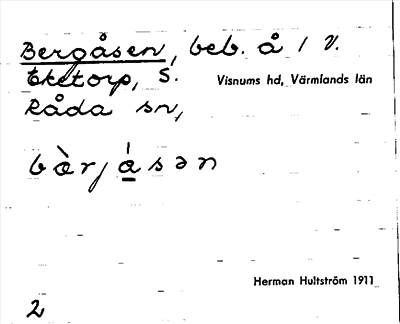 Bergåsen, beb. å 1 V.
Eketorp, S. Visnums hd, Värmlands län
Råda sn,
bæ̀rjǻsən
Herman Hultström 1911
2